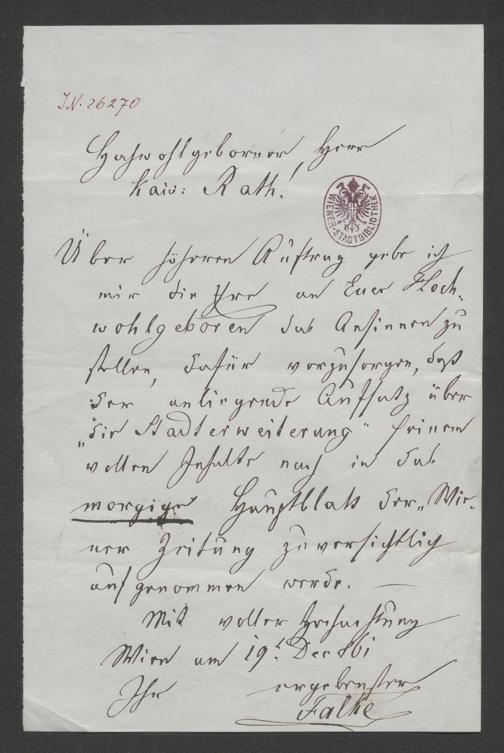 I.N. 26270
Hochwohlgeborner Herr
kais: Rath!
WIENER-STADTBIBLIOTHEK
Über höheren Auftrag gebe ich
mir die Ehre an Euer Hoch-
wohlgeboren das Ansinnen zu
stellen, dafür vorzusorgen, daß
der anliegende Aufsatz über
„die Stadterweiterung“ seinem
vollen Inhalte nach in das
morgige Hauptblatt der „Wie-
ner Zeitung zuversichtlich
aufgenommen werde. —
Mit voller Hochachtung
Wien am 19t Dec 861
Ihr ergebenster
Falke